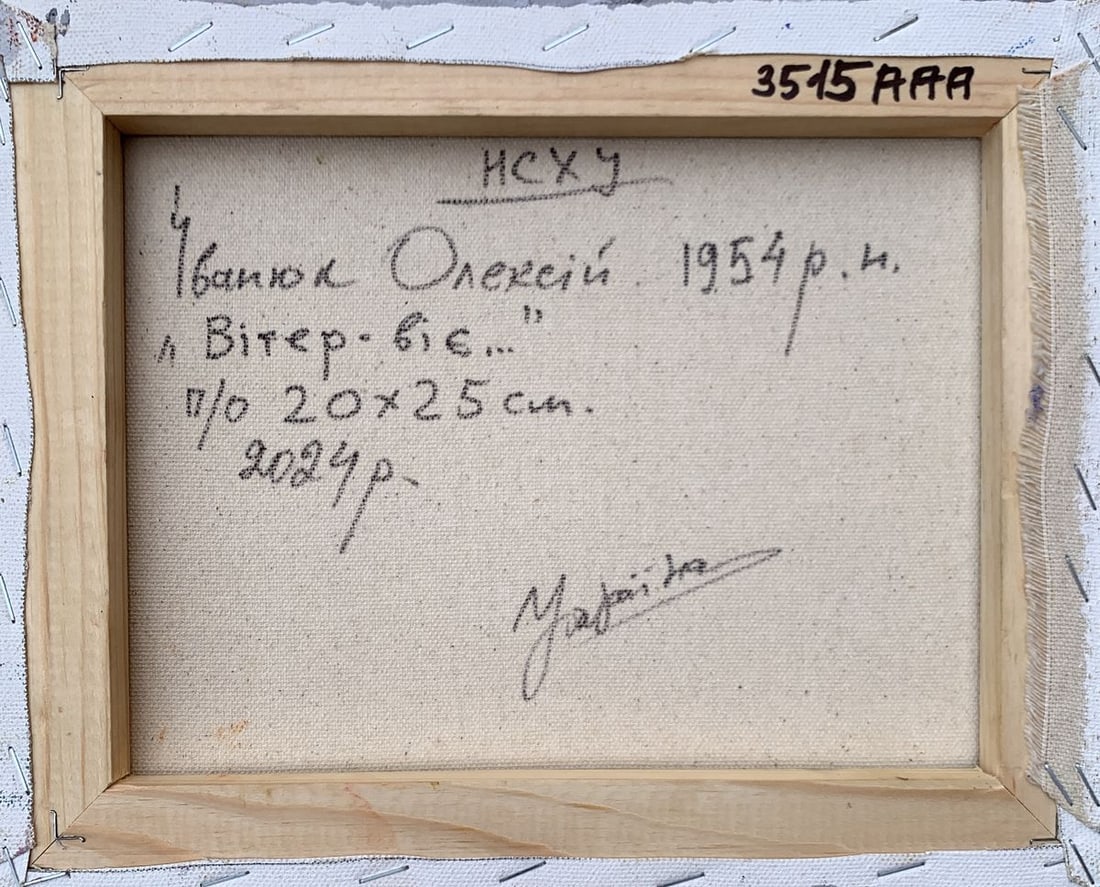 3515 ААА
НСХУ
Іванюк Олексій 1954 р. н.
„Вітер-віє..."
п/о 20х25 см.
2024 р.
Україна